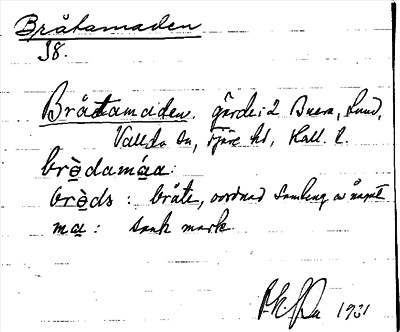 Bråtamaden
38.
Bråtamaden. gärde i 2 Buera, Lund,
Vallda sn, Fjäre hd, Hall. l.
brèdamáa:
brèds: bråte, oordnad samling av något
ma: sank mark
1931